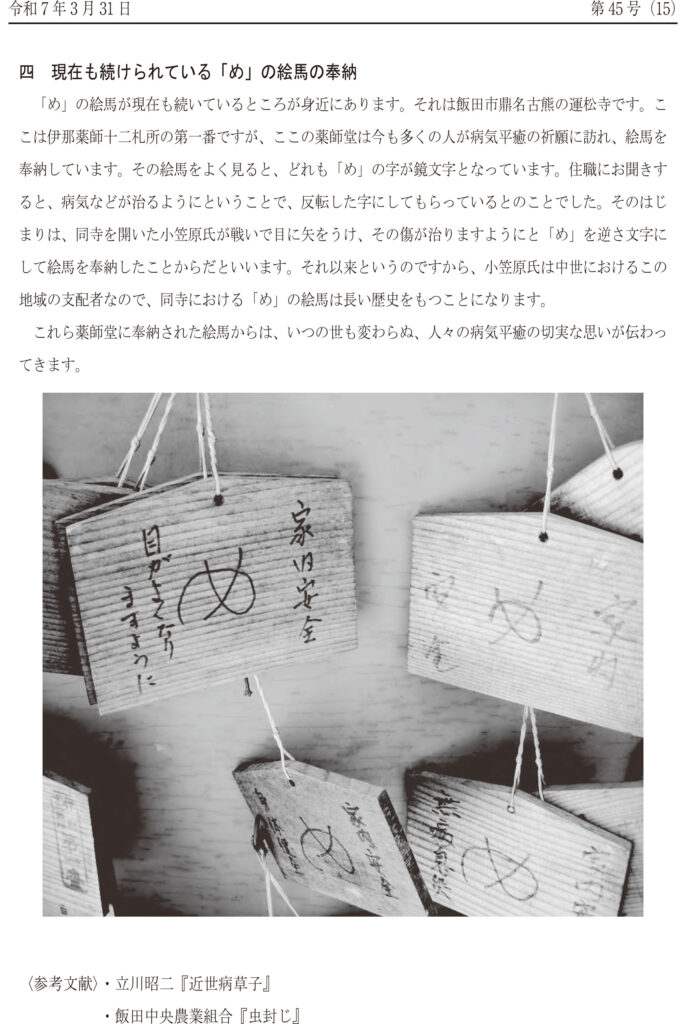 令和7年3月31日
第45号（15）
四　現在も続けられている「め」の絵馬の奉納
「め」の絵馬が現在も続いているところが身近にあります。それは飯田市鼎名古熊の運松寺です。こ
こは伊那薬師十二札所の第一番ですが、ここの薬師堂は今も多くの人が病気平癒の祈願に訪れ、絵馬を
奉納しています。その絵馬をよく見ると、どれも「め」の字が鏡文字となっています。住職にお聞きす
ると、病気などが治るようにということで、反転した字にしてもらっているとのことでした。そのはじ
まりは、同寺を開いた小笠原氏が戦いで目に矢をうけ、その傷が治りますようにと「め」を逆さ文字に
して絵馬を奉納したことからだといいます。それ以来というのですから、小笠原氏は中世におけるこの
地域の支配者なので、同寺における「め」の絵馬は長い歴史をもつことになります。
これら薬師堂に奉納された絵馬からは、いつの世も変わらぬ、人々の病気平癒の切実な思いが伝わっ
てきます。
家内安全
め
目がよくなり
ますように
め
め
め
〈参考文献〉・立川昭二『近世病草子』
・飯田中央農業組合『虫封じ』